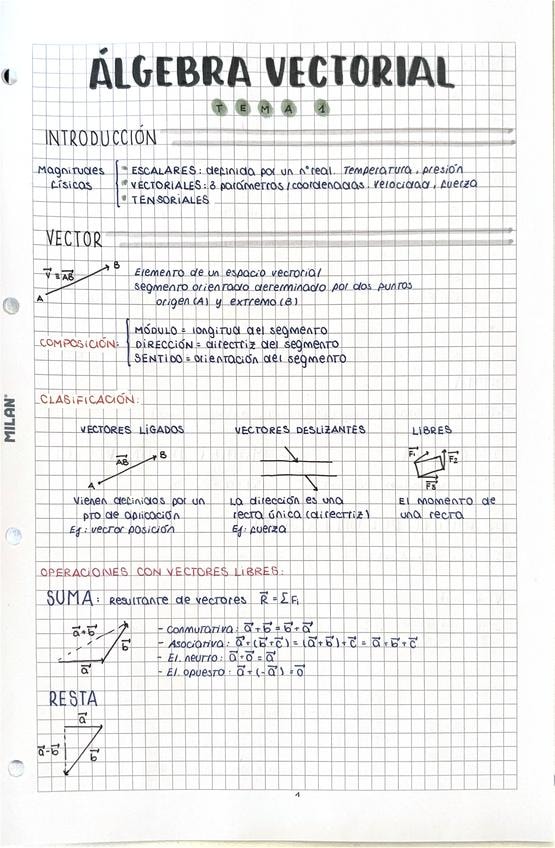 ÁLGEBRA VECTORIAL
TEMA 1
INTRODUCCIÓN
Magnitudes físicas
* ESCALARES: definida por un nº real. Temperatura, presión
* VECTORIALES: 3 parámetros/coordenadas. velocidad, fuerza
* TENSORIALES
VECTOR
V⃗ ≡ A⃗B⃗
A
B
Elemento de un espacio vectorial
Segmento orientado determinado por dos puntos
origen (A) y extremo (B)
COMPOSICIÓN:
MÓDULO = longitud del segmento
DIRECCIÓN = directriz del segmento
SENTIDO = orientación del segmento
CLASIFICACIÓN:
MILAN
VECTORES LIGADOS
A⃗B⃗
A
B
Vienen definidos por un
pto de aplicación
Ej: vector posición
VECTORES DESLIZANTES
La dirección es una
recta única (directriz)
Ej: fuerza
LIBRES
F⃗₁
F⃗₂
F⃗₃
El momento de
una recta
OPERACIONES CON VECTORES LIBRES:
SUMA: Resultante de vectores R⃗ = ΣFᵢ
a⃗+b⃗
b⃗
a⃗
- Conmutativa: a⃗+b⃗ = b⃗+a⃗
- Asociativa: a⃗+(b⃗+c⃗) = (a⃗+b⃗)+c⃗ = a⃗+b⃗+c⃗
- El. neutro: a⃗+o⃗ = a⃗
- El. opuesto: a⃗+(-a⃗) = o⃗
RESTA
a⃗
a⃗-b⃗
b⃗
1